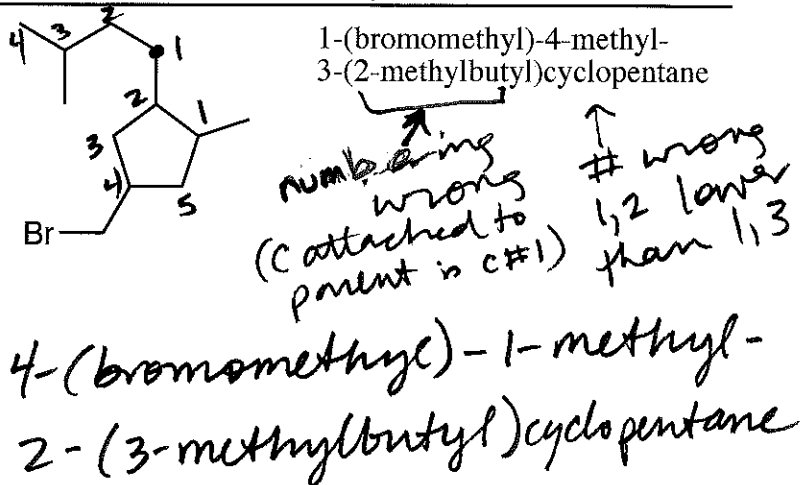 4 3 2 1
1-(bromomethyl)-4-methyl-
3-(2-methylbutyl)cyclopentane
2 1
3
4 5
Br
numbering
wrong
(C attached to
parent is C#1)
# wrong
1,2 lower
than 1,3
4-(bromomethyl)-1-methyl-
2-(3-methylbutyl)cyclopentane